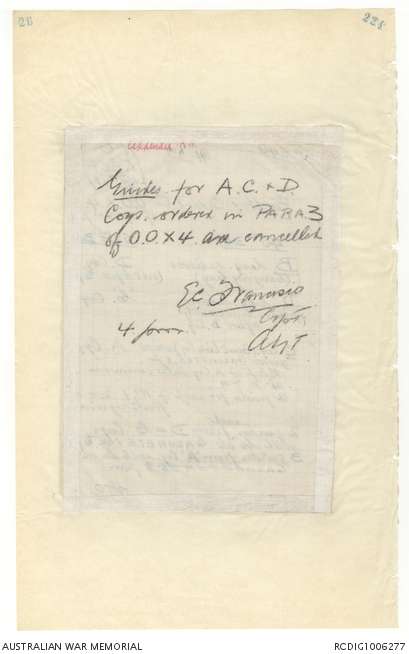 2B
228
Guides for A.C. & D
Coys. ordered in PARA 3
of O.O. X4. are cancelled
EC Francisco
Capt
4 from
Adjt
AUSTRALIAN WAR MEMORIAL
RCDIG1006277